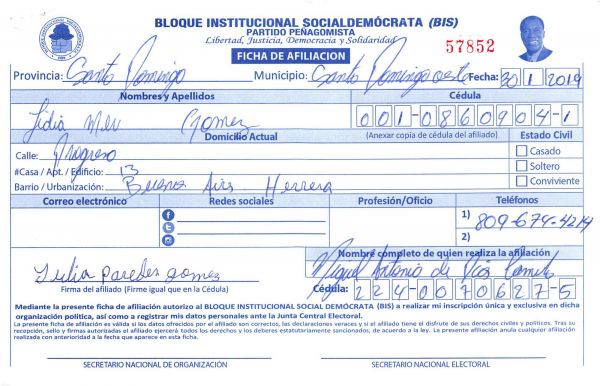 BLOQUE INSTITUCIONAL SOCIALDEMÓCRATA (BIS)
PARTIDO PEÑAGOMISTA
Libertad, Justicia, Democracia y Solidaridad
57852
FICHA DE AFILIACION
Provincia: Santo Domingo Municipio: Santo Domingo oeste Fecha: 30 1 2019
Nombres y Apellidos Cédula
Lidia Gomez 001-0860904-1
Domicilio Actual (Anexar copia de cédula del afiliado) Estado Civil
Calle: Progreso Casado
#Casa / Apt. / Edificio: 13 Soltero
Barrio / Urbanización: Buenos Airs Herrera Conviviente
Correo electrónico Redes sociales Profesión/Oficio Teléfonos
1) 809-674-4214
2)
Nombre completo de quien realiza la afiliación
Miguel Antonio de
Lidia paredes gomez
Firma del afiliado (Firme igual que en la Cédula) Cédula: 224-0070627-5
Mediante la presente ficha de afiliación autorizo al BLOQUE INSTITUCIONAL SOCIAL DEMÓCRATA (BIS) a realizar mi inscripción única y exclusiva en dicha
organización política, así como a registrar mis datos personales ante la Junta Central Electoral.
La presente ficha de afiliación es válida si los datos ofrecidos por el afiliado son correctos, las declaraciones veraces y si el afiliado tiene el disfrute de sus derechos civiles y políticos. Tras su
recepción, sello y firmas autorizadas el afiliado ejercerá todos los derechos y los deberes estatutariamente sancionados, de acuerdo a la ley. La presente afiliación anula cualquier afiliación
realizada con anterioridad a la fecha que aparece en esta ficha.
SECRETARIO NACIONAL DE ORGANIZACIÓN SECRETARIO NACIONAL ELECTORAL